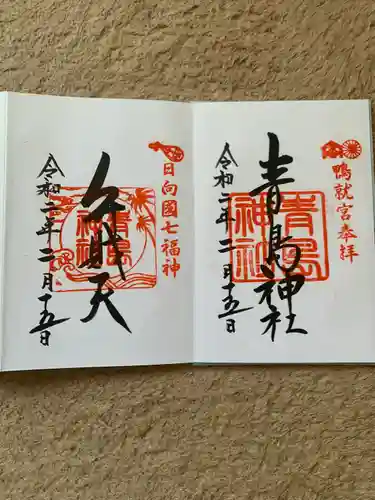 鴨就宮奉拝
青島神社
青島神社
令和二年二月十五日
日向國七福神
弁財天
青島神社
令和二年二月十五日